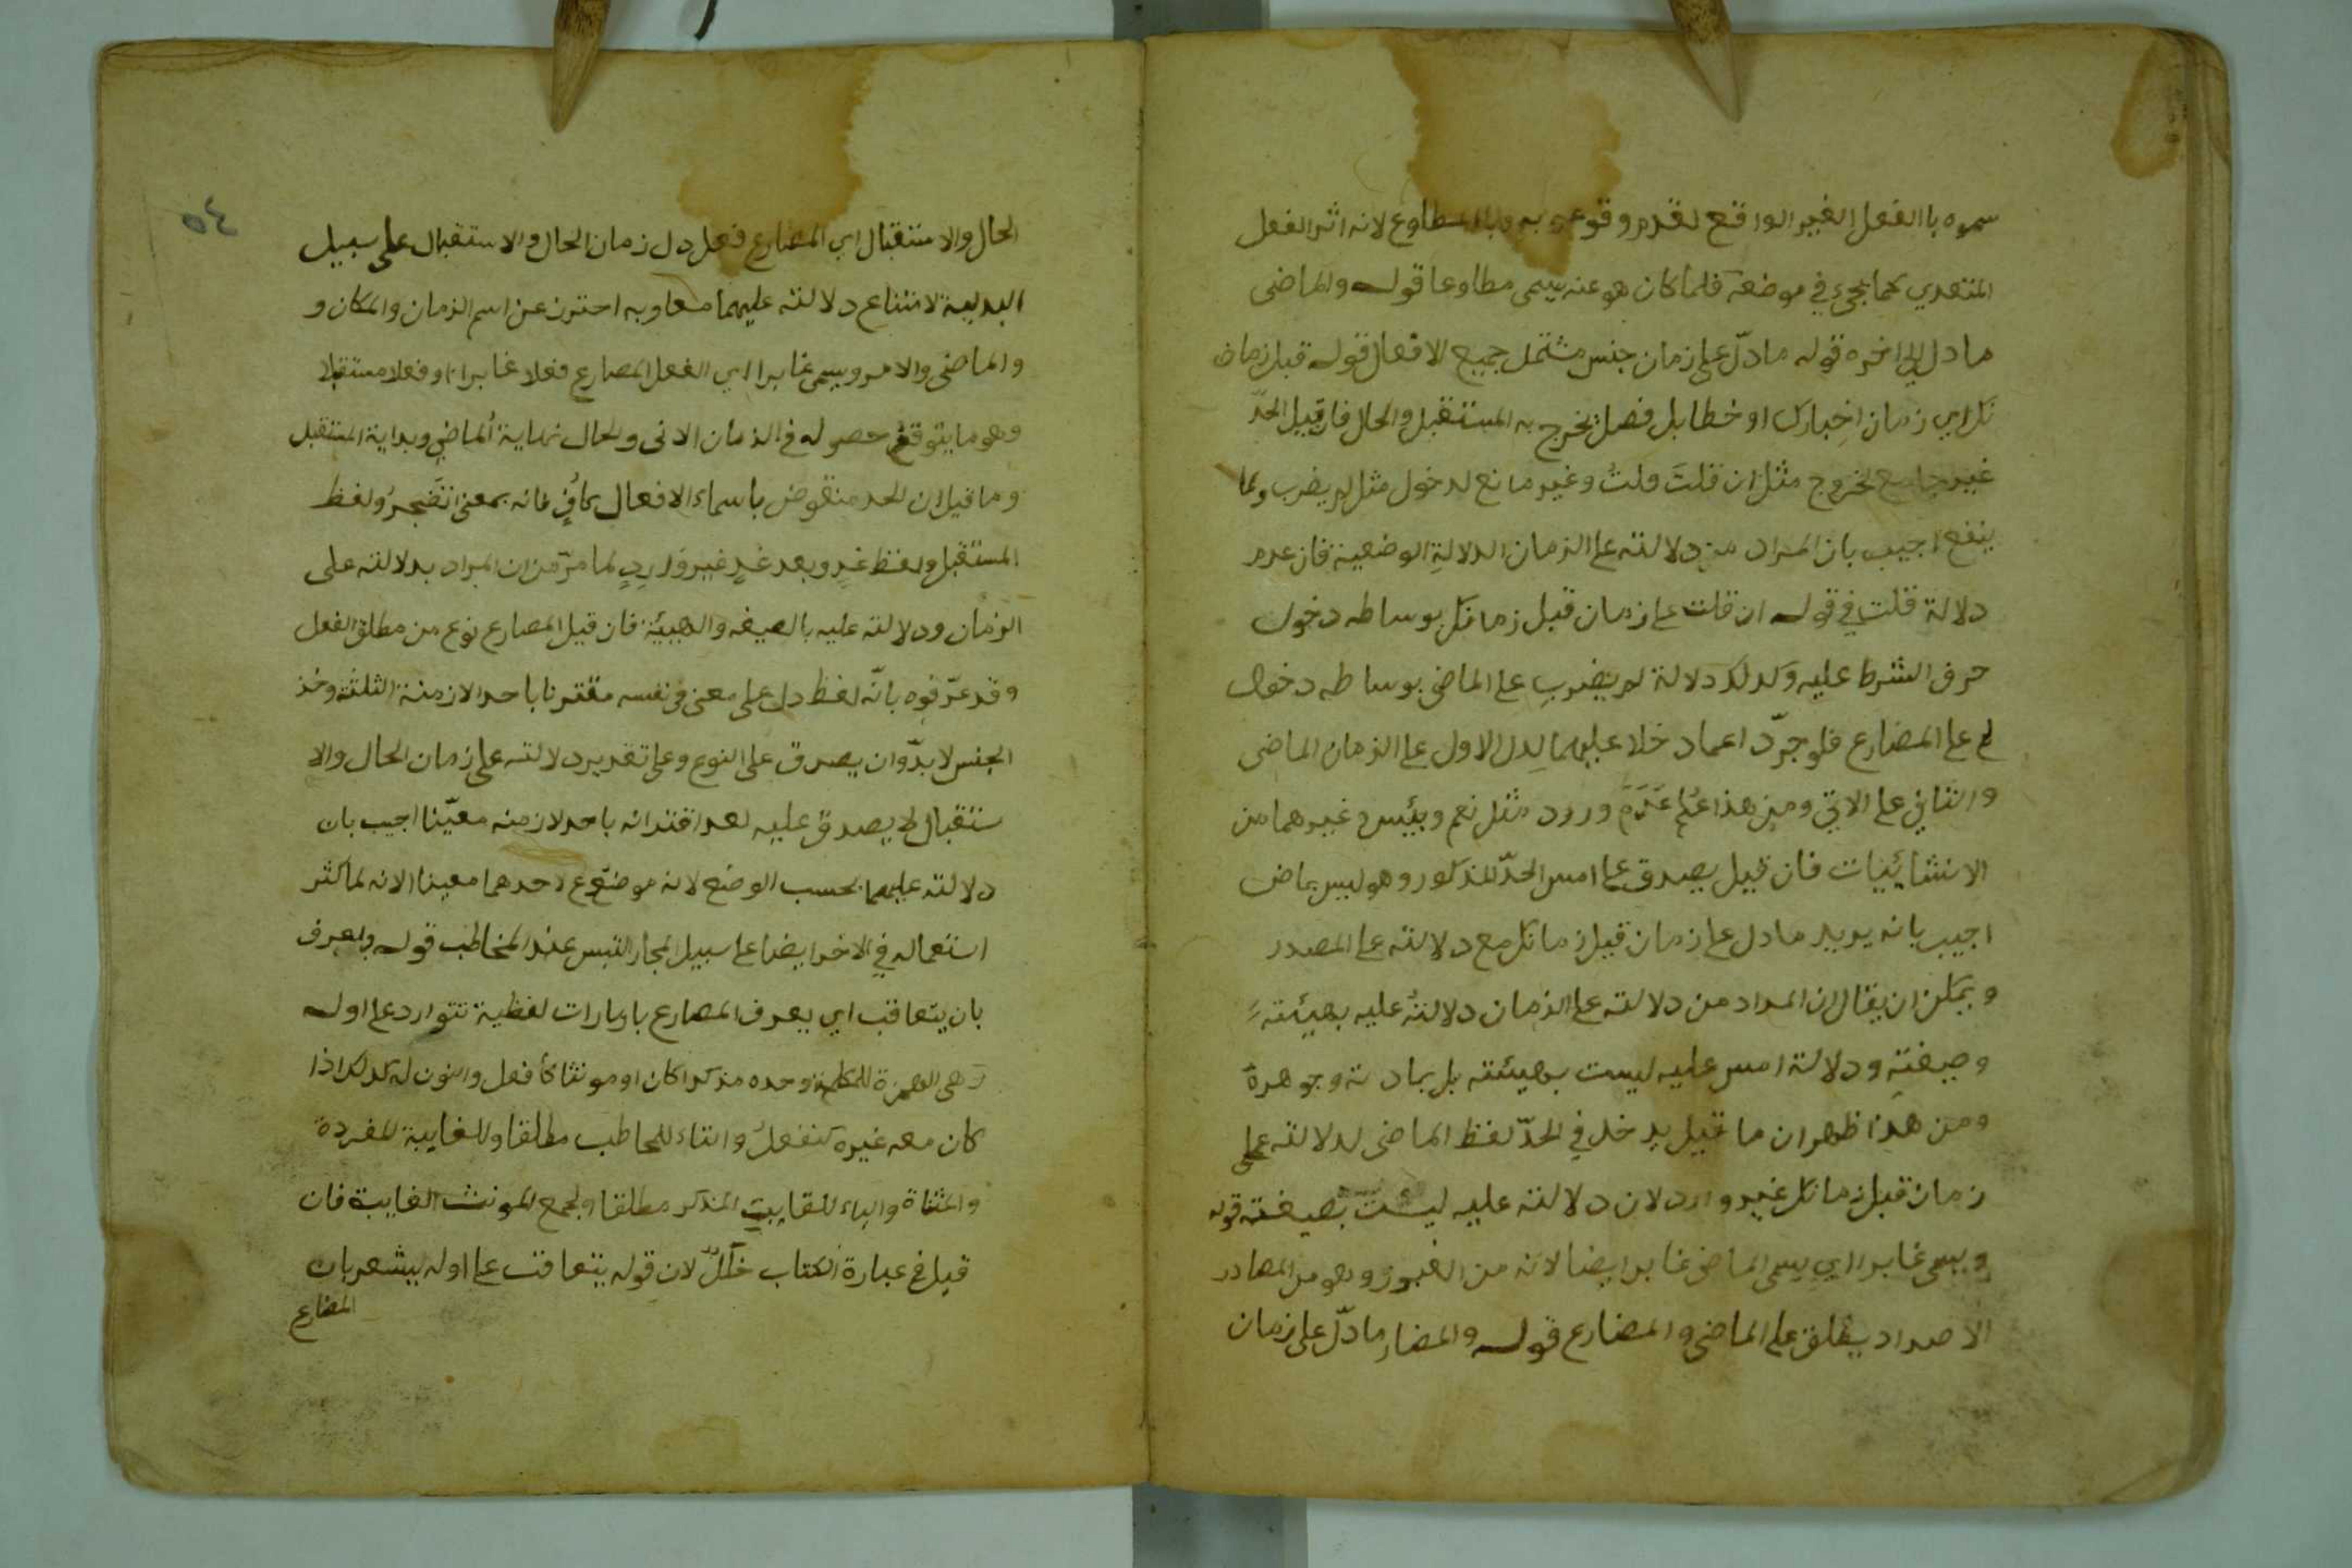 سموه با الفعل الغير الواقع لعدم وقوعه به وبالمطاوع لانه اثر الفعل
المتعدي كما يجيء في موضعه فلما كان هو عنه يسمى مطاوعا قوله والماضى
ما دل الى اخره قوله ما دلّ على زمان جنس مشتمل جميع الافعال قوله قبل زما
نك اي زمان اخبارك او خطابك فصل يخرج به المستقبل والحال فان قيل الحدّ
غير جامع لخروج مثل ان قلتَ قلتُ وغير مانع لدخول مثل لم يضرب ولما
ينفع اجيب بان المراد من دلالته على الزمان الدلالةِ الوضعية فان عدم
دلالة قلت في قوله ان قلت على زمان قبل زمانك بوساطه دخول
حرف الشرط عليه وكذلك دلالة لم يضربِ على الماضى بوساطه دخول
لم على المضارع فلو جرّد اعماد خلا عليهما لدل الاول على الزمان الماضى
والثاني على الاتي ومن هذا عُلِم عَدَمَ ورود مثل نعم وبئيس وغيرهما من
الانشائيات فان قيل يصدق على امس الحدّ المذكور وهو ليس بماض
اجيب بانه يريد ما دل على زمان قبل زمانك مع دلالته على المصدر
ويمكن ان يقال ان المراد من دلالته على الزمان دلالتهُ عليه بهيئته
وصيغتِه ودلالة امس عليه ليست بهيئته بل بمادته وجوهرة
ومن هذا ظهر ان ما قيل يدخل في الحدّ لفظ الماضى لدلالته على
زمان قبل زمانك غير وارد لان دلالته عليه ليست بصيغته قوله
ويسمى غابرا اي يسمى الماضى غابرا ايضا لانه من الغبور وهو من المصادر
الاضداد يطلق على الماضى والمضارع قوله والمضارِ ما دلّ على زمان
٥٤
الحال والاستقبال اي المضارع فعل دل زمان الحال والاستقبال على سبيل
البدلية لامتناع دلالته عليهما معا وبه احترز عن اسم الزمان والمكان و
والماضى والامر ويسمى غابرا اي الفعل المصارع فعلا غابرا او فعلا مستقبلا
وهو ما يتوقع حصوله في الزمان الاتى والحال نهاية الماضي وبداية المستقبل
وما قيل ان الحد منقوض باسماء الافعال كافٍّ فانه بمعنى اتضجرُ ولفظ
المستقبل ولفظ غدٍ وبعد غدٍ غير واردٍ لما مرّ من ان المراد بدلالته على
الزمان ودلالته عليه بالصيغه والهيئة فان قيل المصارع نوع من مطلق الفعل
وقد عرّفوه بانّه لفظ دل على معنى في نفسه مقترنا باحد الازمنة الثلثة وحد
الجنس لا بدّ وان يصدق على النوع وعلى تقدير دلالته على زمان الحال والا
ستقبال لا يصدق عليه لعد اقترانه باحد لازمنه معيّنا اجيب بان
دلالته عليهما بحسب الوضع لانه موضوع لاحدهما معينا الا انه لما كثر
استعماله في الاخر ايضا على سبيل المجاز التبس عند المخاطب قوله ويعرف
بان يتعاقب اي يعرف المضارع بامارات لفظية تتوارد على اوله
وهى الهمزة للمتكلم وحده مذكرا كان او مونثا كأ فعل والنون له كذلك اذا
كان معه غيره كنفعلُ والتاء للمخاطب مطلقا وللغايبة المفردة
والمثناة والياء للغايبِ المذكر مطلقا ولجمع المونث الغايبة فان
قيل في عبارة الكتاب خللٌ لان قوله يتعاقب على اوله يشعر بان
المضارع